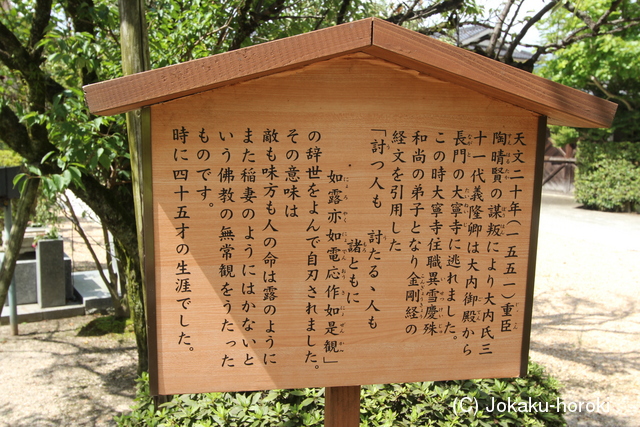 天文二十年（一五五一）重臣
陶晴賢の謀叛により大内氏三
十一代義隆卿は大内御殿から
長門の大寧寺に逃れました。
この時大寧寺住職異雪慶殊
和尚の弟子となり金剛経の
経文を引用した
「討つ人も　討たるゝ人も
諸ともに
如露亦如電応作如是観」
の辞世をよんで自刃されました。
その意味は
敵も味方も人の命は露のように
また稲妻のようにはかないと
いう佛教の無常観をうたった
ものです。
時に四十五才の生涯でした。
(C) Jokaku-horok